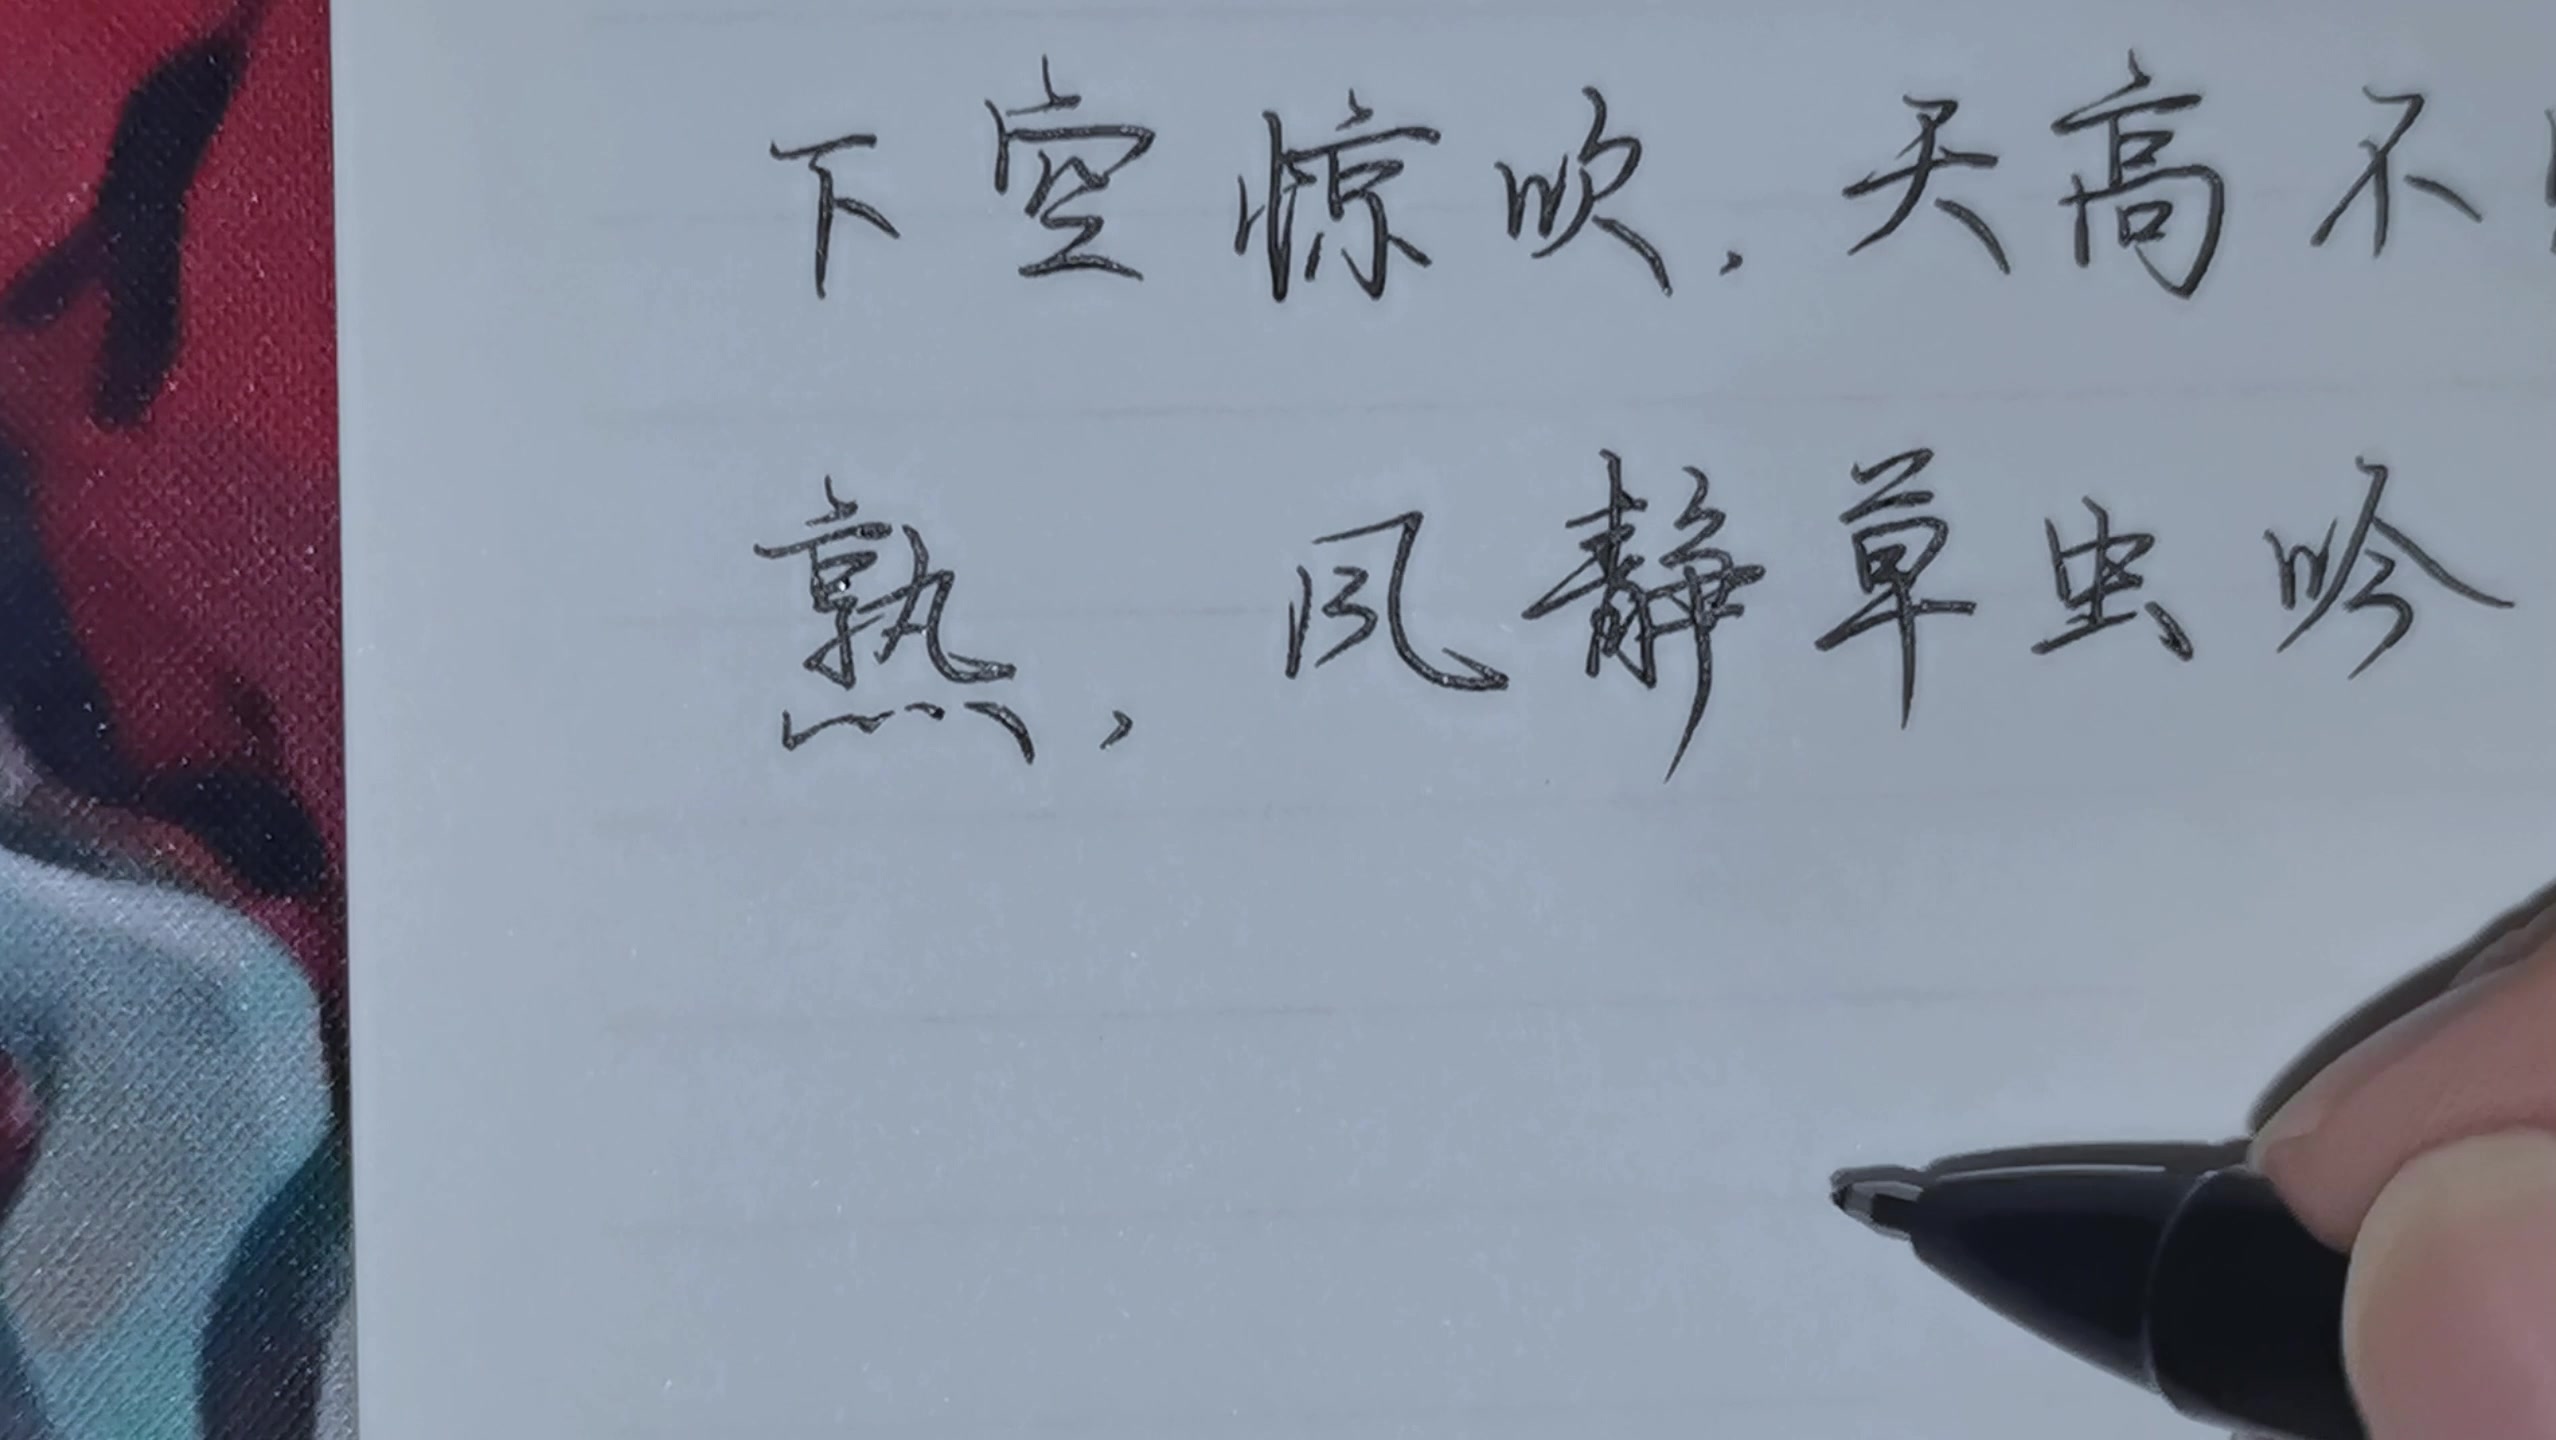 下空惊吹.天高不
熟,风静草虫吟